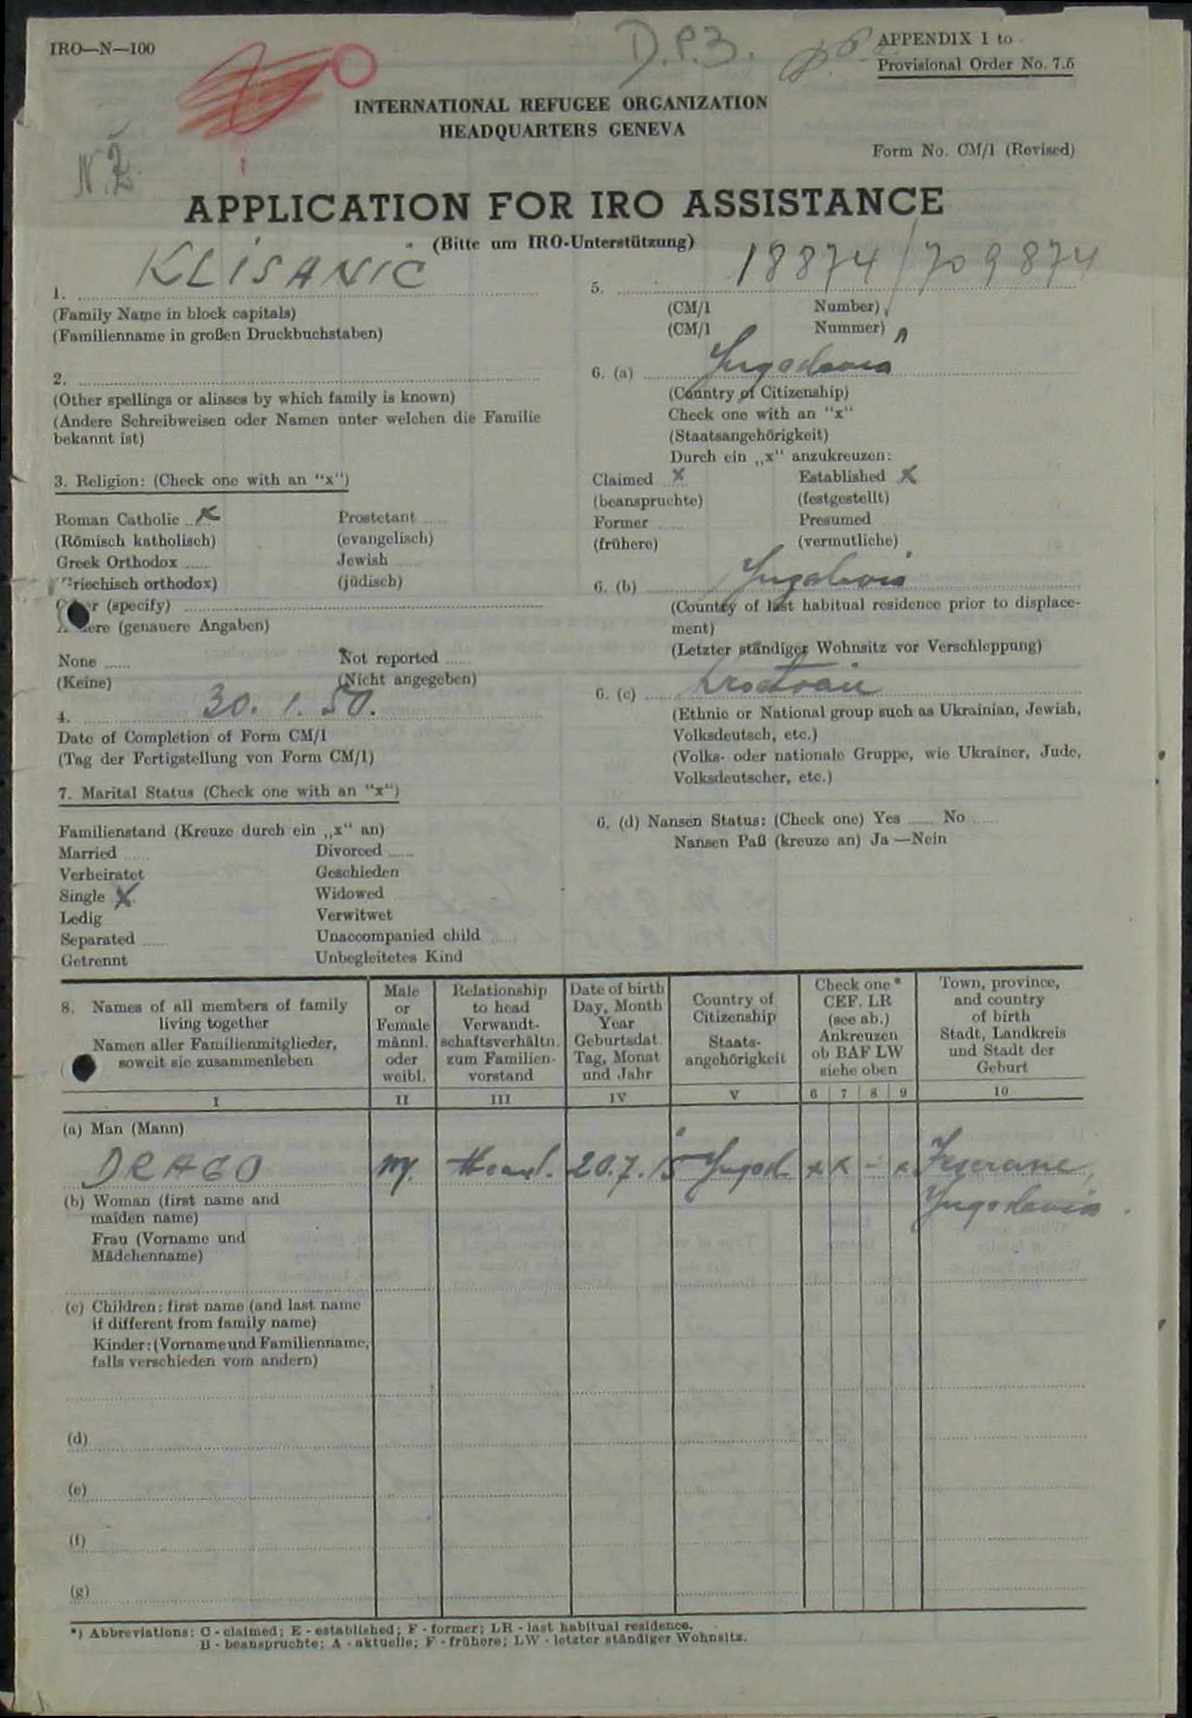 IRO—N—100
D.P.3.
APPENDIX 1 to
Provisional Order No. 7.5
INTERNATIONAL REFUGEE ORGANIZATION
HEADQUARTERS GENEVA
Form No. CM/1 (Revised)
N.Z.
APPLICATION FOR IRO ASSISTANCE
(Bitte um IRO-Unterstützung)
1. KLISANIC
(Family Name in block capitals)
(Familienname in großen Druckbuchstaben)
2.
(Other spellings or aliases by which family is known)
(Andere Schreibweisen oder Namen unter welchen die Familie
bekannt ist)
3. Religion: (Check one with an “x“)
Roman Catholic x Prostetant
(Römisch katholisch) (evangelisch)
Greek Orthodox Jewish
riechisch orthodox) (jüdisch)
(specify)
(genauere Angaben)
None Not reported
(Keine) (Nicht angegeben)
4. 30. 1. 50.
Date of Completion of Form CM/1
(Tag der Fertigstellung von Form CM/1)
7. Marital Status (Check one with an “x“)
Familienstand (Kreuze durch ein „x“ an)
Married Divorced
Verheiratet Geschieden
Single x Widowed
Ledig Verwitwet
Separated Unaccompanied child
Getrennt Unbegleitetes Kind
5. 18874/709874
(CM/1 Number)
(CM/1 Nummer)
6. (a) Yugoslavia
(Country of Citizenship)
Check one with an “x“
(Staatsangehörigkeit)
Durch ein „x“ anzukreuzen:
Claimed x Established x
(beanspruchte) (festgestellt)
Former Presumed
(frühere) (vermutliche)
6. (b)
(Country of last habitual residence prior to displace-
ment)
(Letzter ständiger Wohnsitz vor Verschleppung)
6. (c)
(Ethnic or National group such as Ukrainian, Jewish,
Volksdeutsch, etc.)
(Volks- oder nationale Gruppe, wie Ukrainer, Jude,
Volksdeutscher, etc.)
6. (d) Nansen Status: (Check one) Yes No
Nansen Paß (kreuze an) Ja —Nein
8. Names of all members of family
living together
Namen aller Familienmitglieder,
soweit sie zusammenleben
Male
or
Female
männl.
oder
weibl.
Relationship
to head
Verwandt-
schaftsverhältn.
zum Familien-
vorstand
Date of birth
Day, Month
Year
Geburtsdat.
Tag, Monat
und Jahr
Country of
Citizenship
Staats-
angehörigkeit
Check one *
CEF. LR
(see ab.)
Ankreuzen
ob BAF LW
siehe oben
Town, province,
and country
of birth
Stadt, Landkreis
und Stadt der
Geburt
I II III IV V 6 7 8 9 10
(a) Man (Mann)
DRAGO M. Head. 20.7.15 Yugosl. x x - x Jeserane,
Yugoslavia.
(b) Woman (first name and
maiden name)
Frau (Vorname und
Mädchenname)
(c) Children: first name (and last name
if different from family name)
Kinder: (Vorname und Familienname,
falls verschieden vom andern)
(d)
(e)
(f)
(g)
*) Abbreviations: C - claimed; E - established; F - former; LR - last habitual residence.
B - beanspruchte; A - aktuelle; F - frühere; LW - letzter ständiger Wohnsitz.